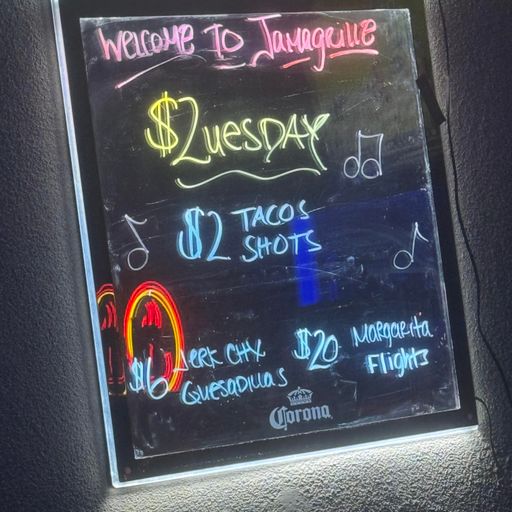 Welcome To Jamagrille
$2uesday
$2 TACOS
SHOTS
$6 Jerk CHX
Quesadillas
$20 Margarita
Flights
Corona